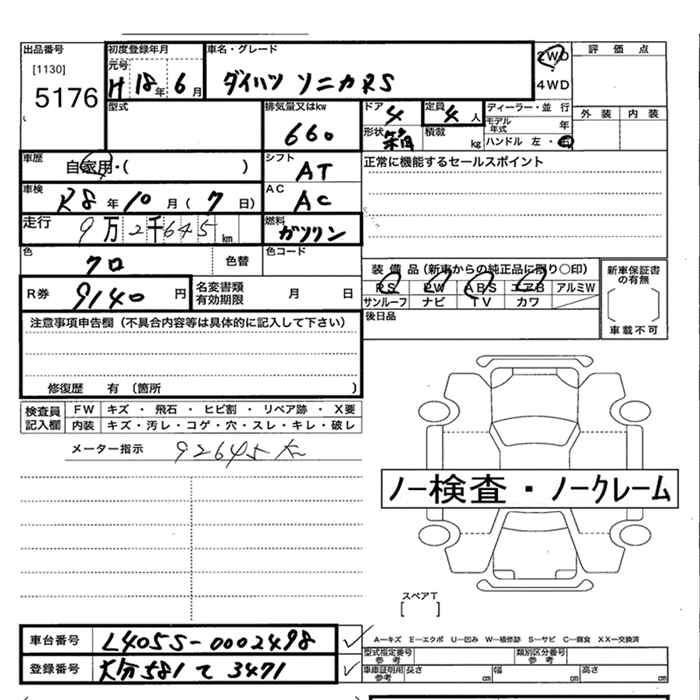 出品番号 初度登録年月 車名・グレード 評価点
[1130] 元号 2WD
5176 H18年6月 ダイハツ ソニカRS 4WD
型式 排気量又はkw ドア 4 定員 4人 ディーラー・並行 外装 内装
660 形状 箱 積載 kg モデル年式 年
ハンドル 左・右
車歴 自家用・( ) シフト AT 正常に機能するセールスポイント
車検 R8年10月(7日) AC AC
走行 9万2千645km 燃料 ガソリン
色 クロ 色替 色コード
装備品(新車からの純正品に限り○印) 新車保証書の有無
R券 9140円 名変書類有効期限 月 日 PS PW ABS エアB アルミW
サンルーフ ナビ TV カワ 車載不可
注意事項申告欄(不具合内容等は具体的に記入して下さい) 後日品
修復歴 有(箇所 )
検査員記入欄 FW キズ・飛石・ヒビ割・リペア跡・X要
内装 キズ・汚レ・コゲ・穴・スレ・キレ・破レ
メーター指示 92645
ノー検査・ノークレーム
スペアT
[ ]
車台番号 L405S-0002498 A−キズ E−エクボ U−凹み W−補修跡 S−サビ C−腐食 XX−交換済
型式指定番号 参考 類別区分番号 参考
登録番号 大分581て3471 車庫証明用 参考 長さ cm 幅 cm 高さ cm